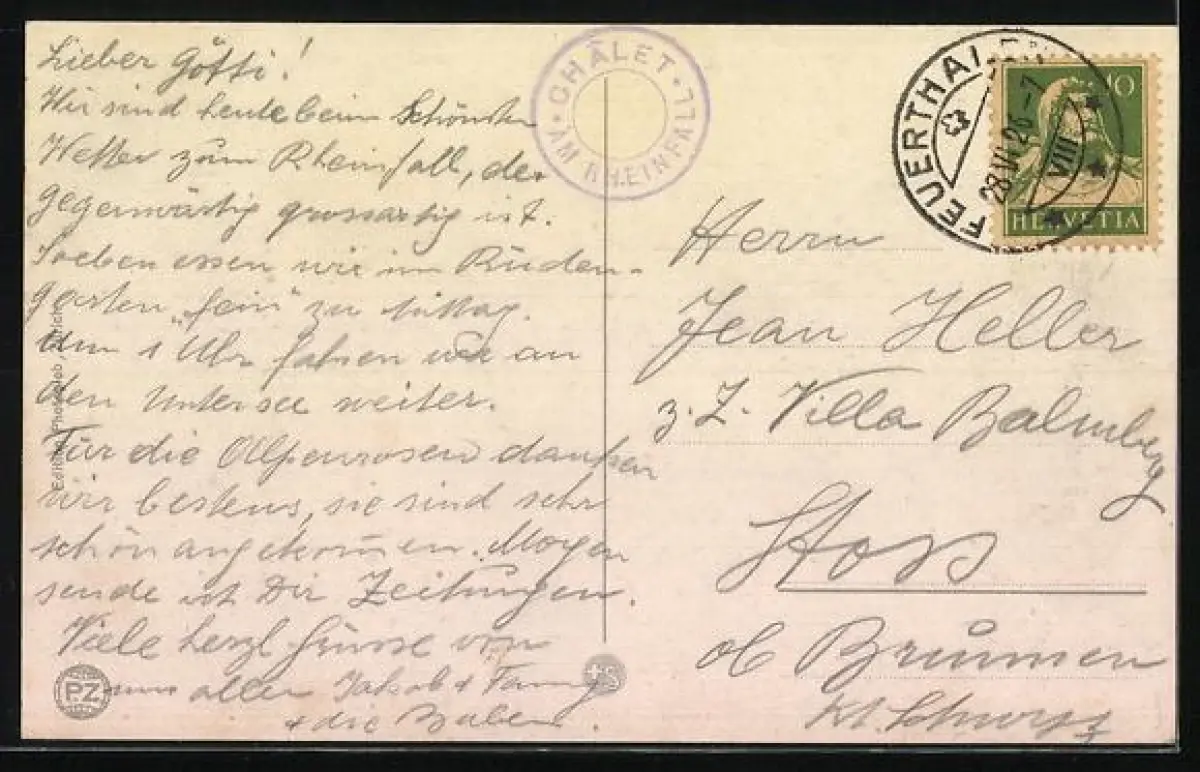 Lieber Götti!
Wir sind heute beim Schönsten
Wetter zum Rheinfall, der
gegenwärtig grossartig ist.
Soeben essen wir im Rüden-
garten „fein" zu Mittag.
Um 1 Uhr fahren wir an
den Untersee weiter.
Für die Alpenrosen danken
wir bestens, sie sind sehr
schön angekommen. Morgen
sende ich Dir Zeitungen.
Viele herzl Grüsse von
uns allen Jakob + Fanny
+ die Buben.
CHÂLET
AM RHEINFALL
FEUERTHALEN
28 VI 26-7
VIII
10
HELVETIA
Herrn
Jean Heller
z. Z. Villa Balmberg
Stoss
ob Brunnen
Kt. Schwyz
PZ